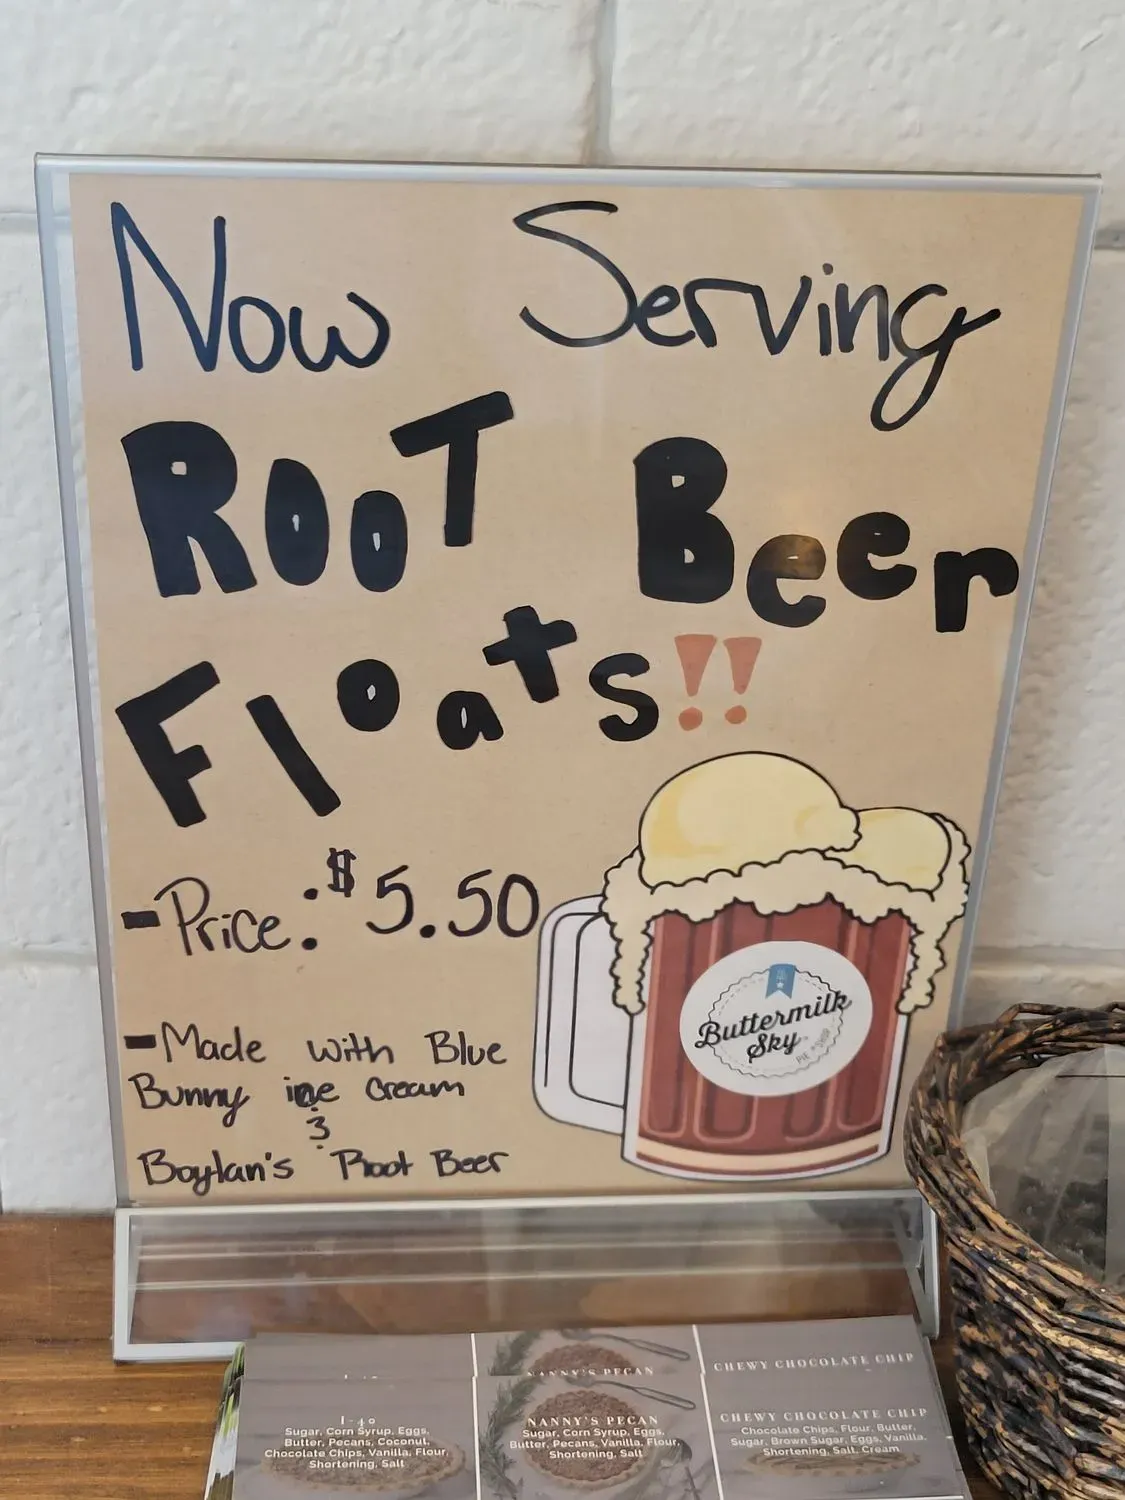 Now Serving
ROOT Beer
Floats!!
- Price: $5.50
- Made with Blue
Bunny ice cream
&
Boylan's Root Beer
Buttermilk
Sky
PIE SHOP
NANNY'S PECAN
CHEWY CHOCOLATE CHIP
I-40
Sugar, Corn Syrup, Eggs,
Butter, Pecans, Coconut,
Chocolate Chips, Vanilla, Flour,
Shortening, Salt
NANNY'S PECAN
Sugar, Corn Syrup, Eggs,
Butter, Pecans, Vanilla, Flour,
Shortening, Salt
CHEWY CHOCOLATE CHIP
Chocolate Chips, Flour, Butter,
Sugar, Brown Sugar, Eggs, Vanilla,
Shortening, Salt, Cream